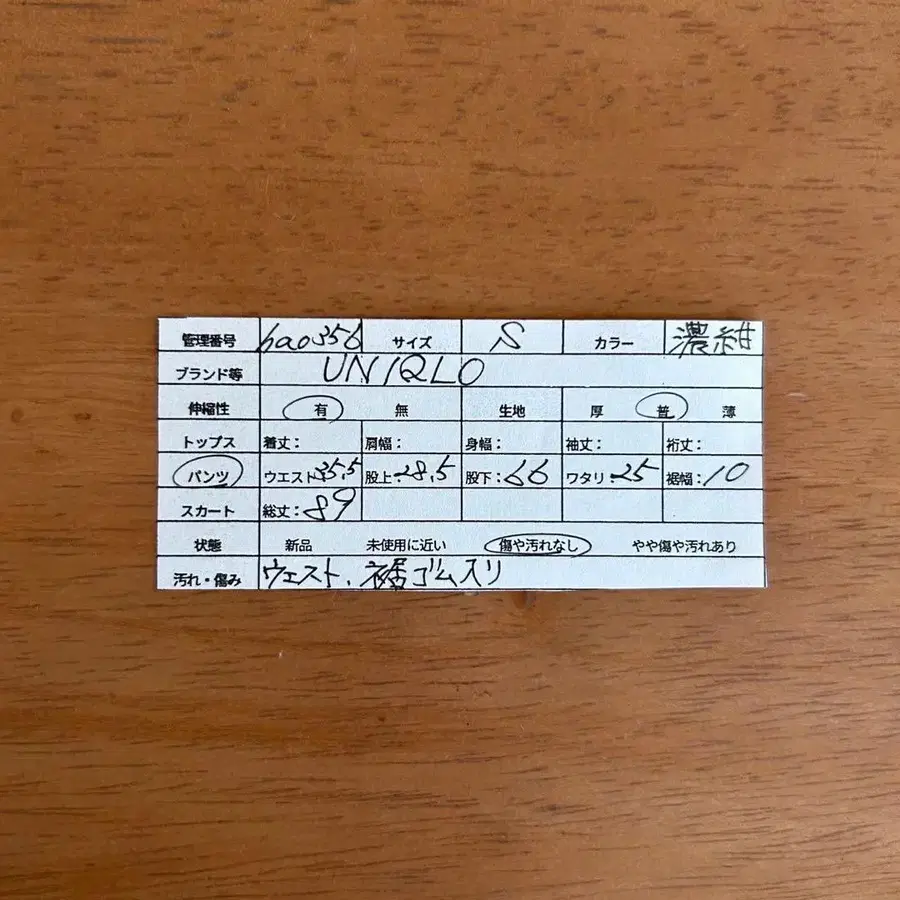 管理番号 hao356 サイズ S カラー 濃紺
ブランド等 UNIQLO
伸縮性 有 無 生地 厚 普 薄
トップス 着丈: 肩幅: 身幅: 袖丈: 裄丈:
パンツ ウエスト:35.5 股上:28.5 股下:66 ワタリ:25 裾幅:10
スカート 総丈:89
状態 新品 未使用に近い 傷や汚れなし やや傷や汚れあり
汚れ・傷み ウェスト、裾ゴム入り